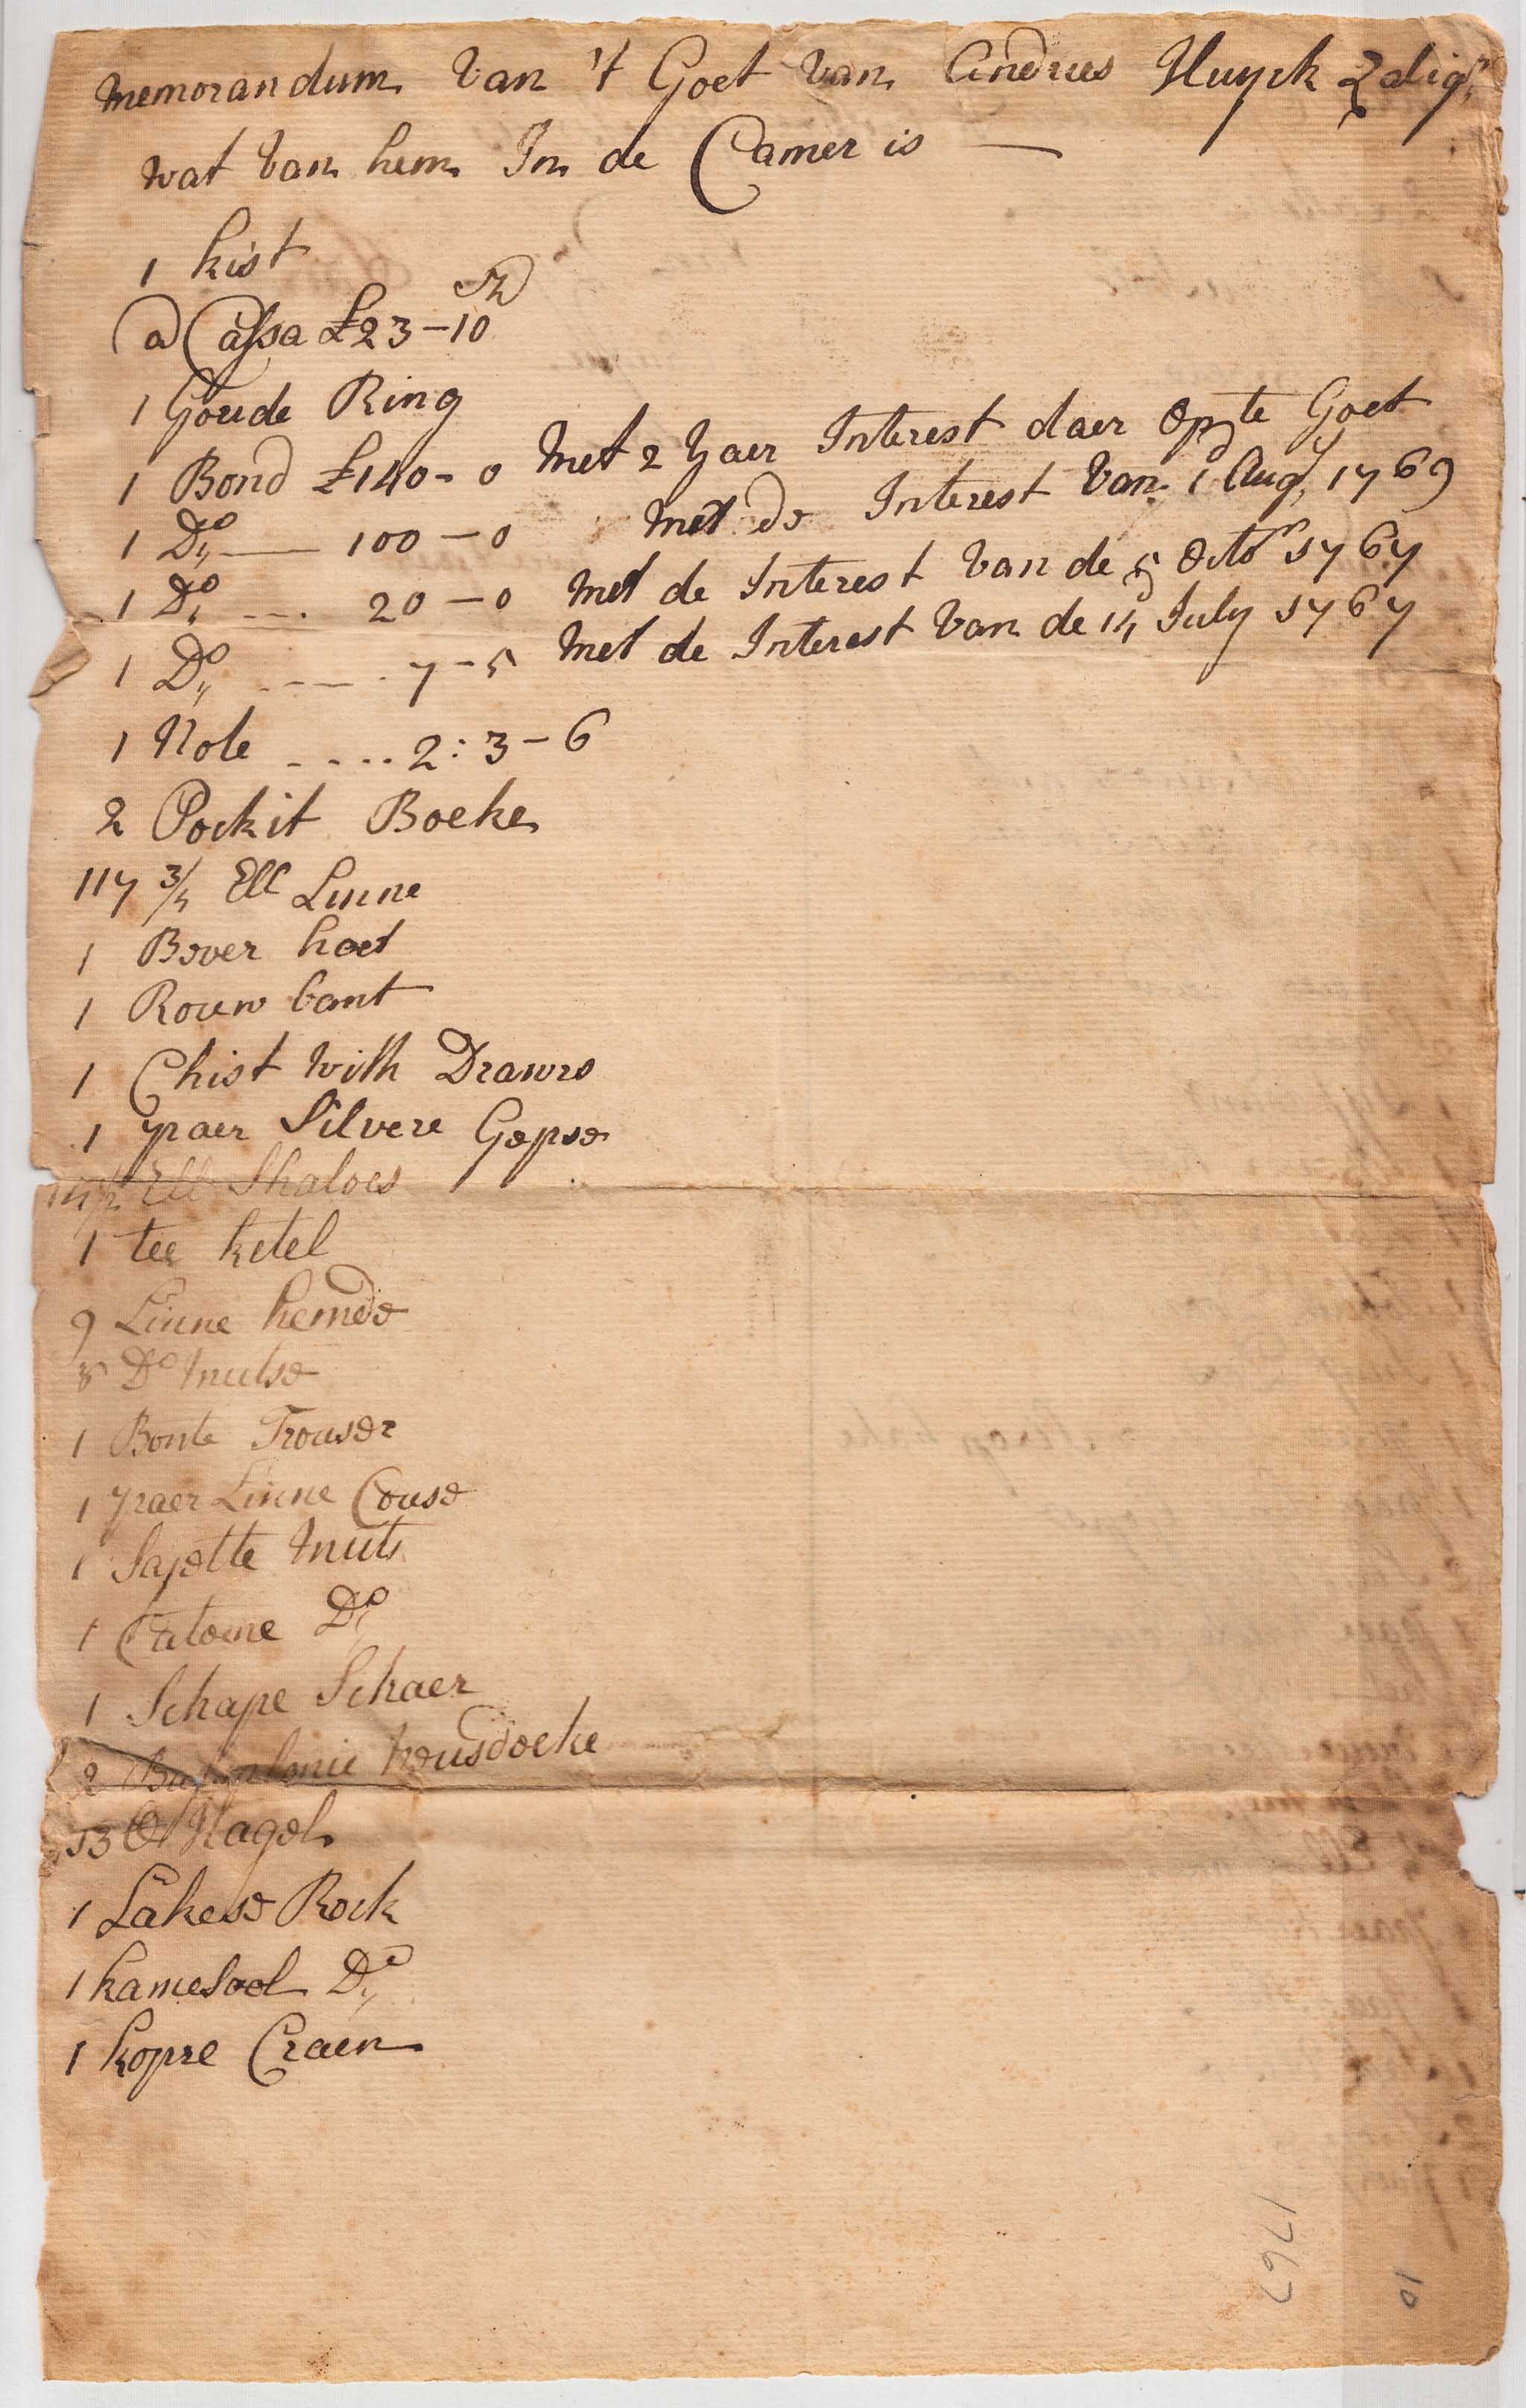 Memorandum Van 't Goet Van Andries Huyck Zalig^r
wat Van hem In de Camer is —
1 kist
a Cassa £23-10
1 Goude Ring
1 Bond £140-0 Met 2 Yaer Interest daer op te Goet
1 D^o — 100-0 Met de Interest Van 1^d Aug^t 1769
1 D^o ---- 20-0 Met de Interest Van de 5 Octo^r 1767
1 D^o ----- 7-5 Met de Interest Van de 14 July 1767
1 Note ..... 2:3-6
2 Pockit Boeke
117 3/4 Ell Linne
1 Bever hoet
1 Rouw bant
1 Chist With Drawrs
1 paer Silvere Gepse
Ell Shaloes
1 tee ketel
9 Linne hemde
8 D^o Mutse
1 Bonte Trouser
1 paer Linne Couse
1 Sajette Muts
1 Catoene D^o
1 Schape Schaer
2 neusdoeke
13 ℔ Nagel
1 Lakese Rock
1 kamesool D^o
1 kopre Craen
1767
10